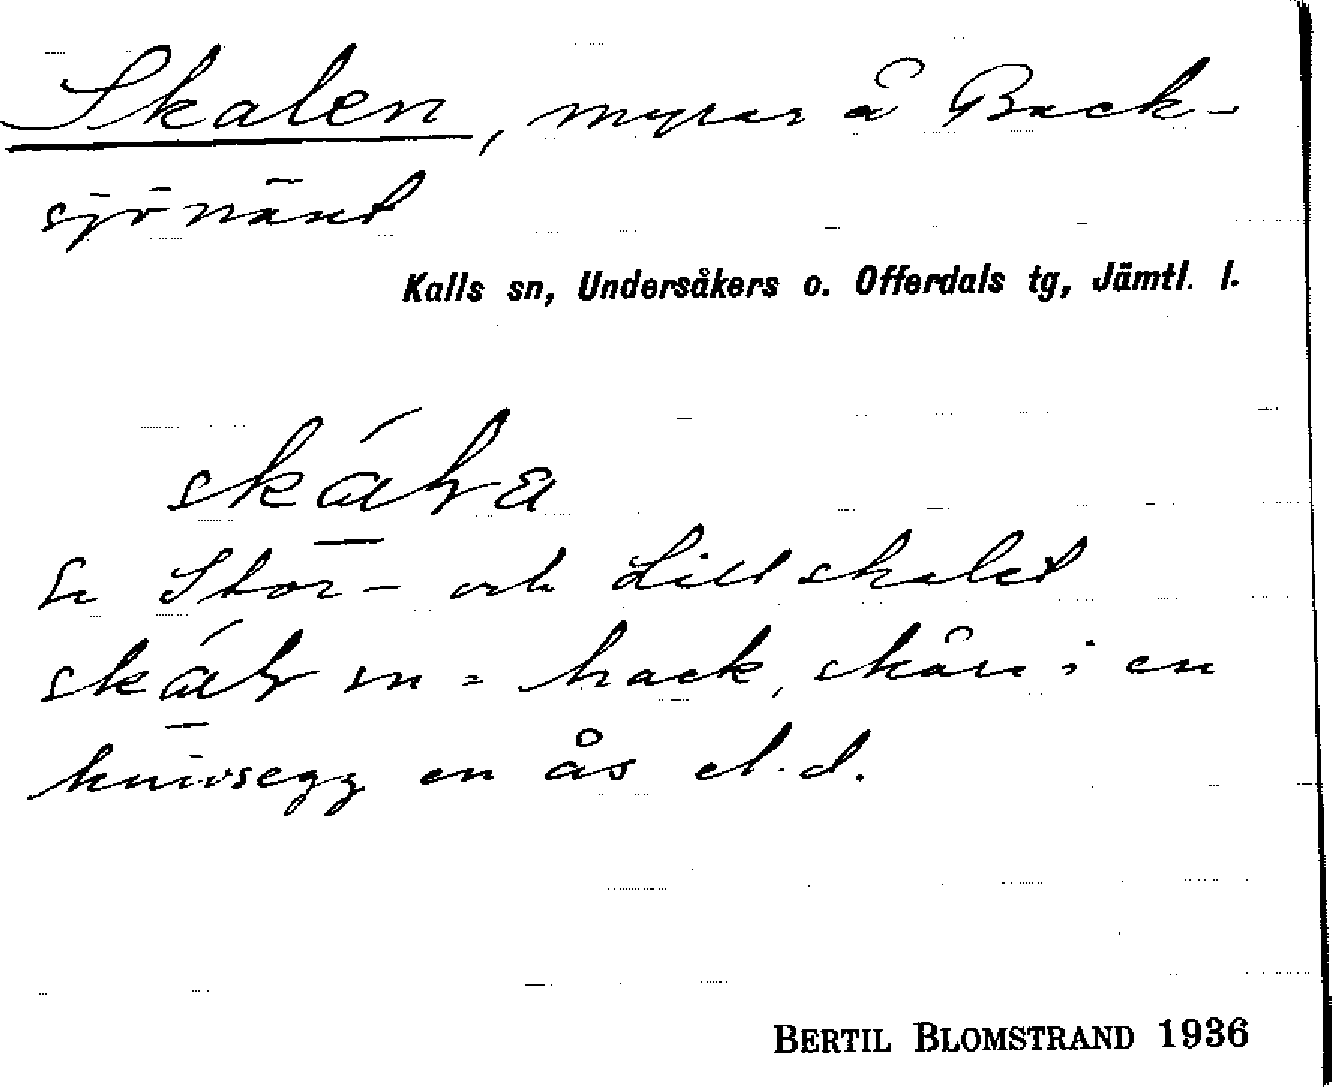 Skalen, myrar å Back-
sjönäset
Kalls sn, Undersåkers o. Offerdals tg, Jämtl. l.
Se Stor- och Lillskalet
sn = hack, skåra i en
knivsegg en ås el.d.
BERTIL BLOMSTRAND 1936